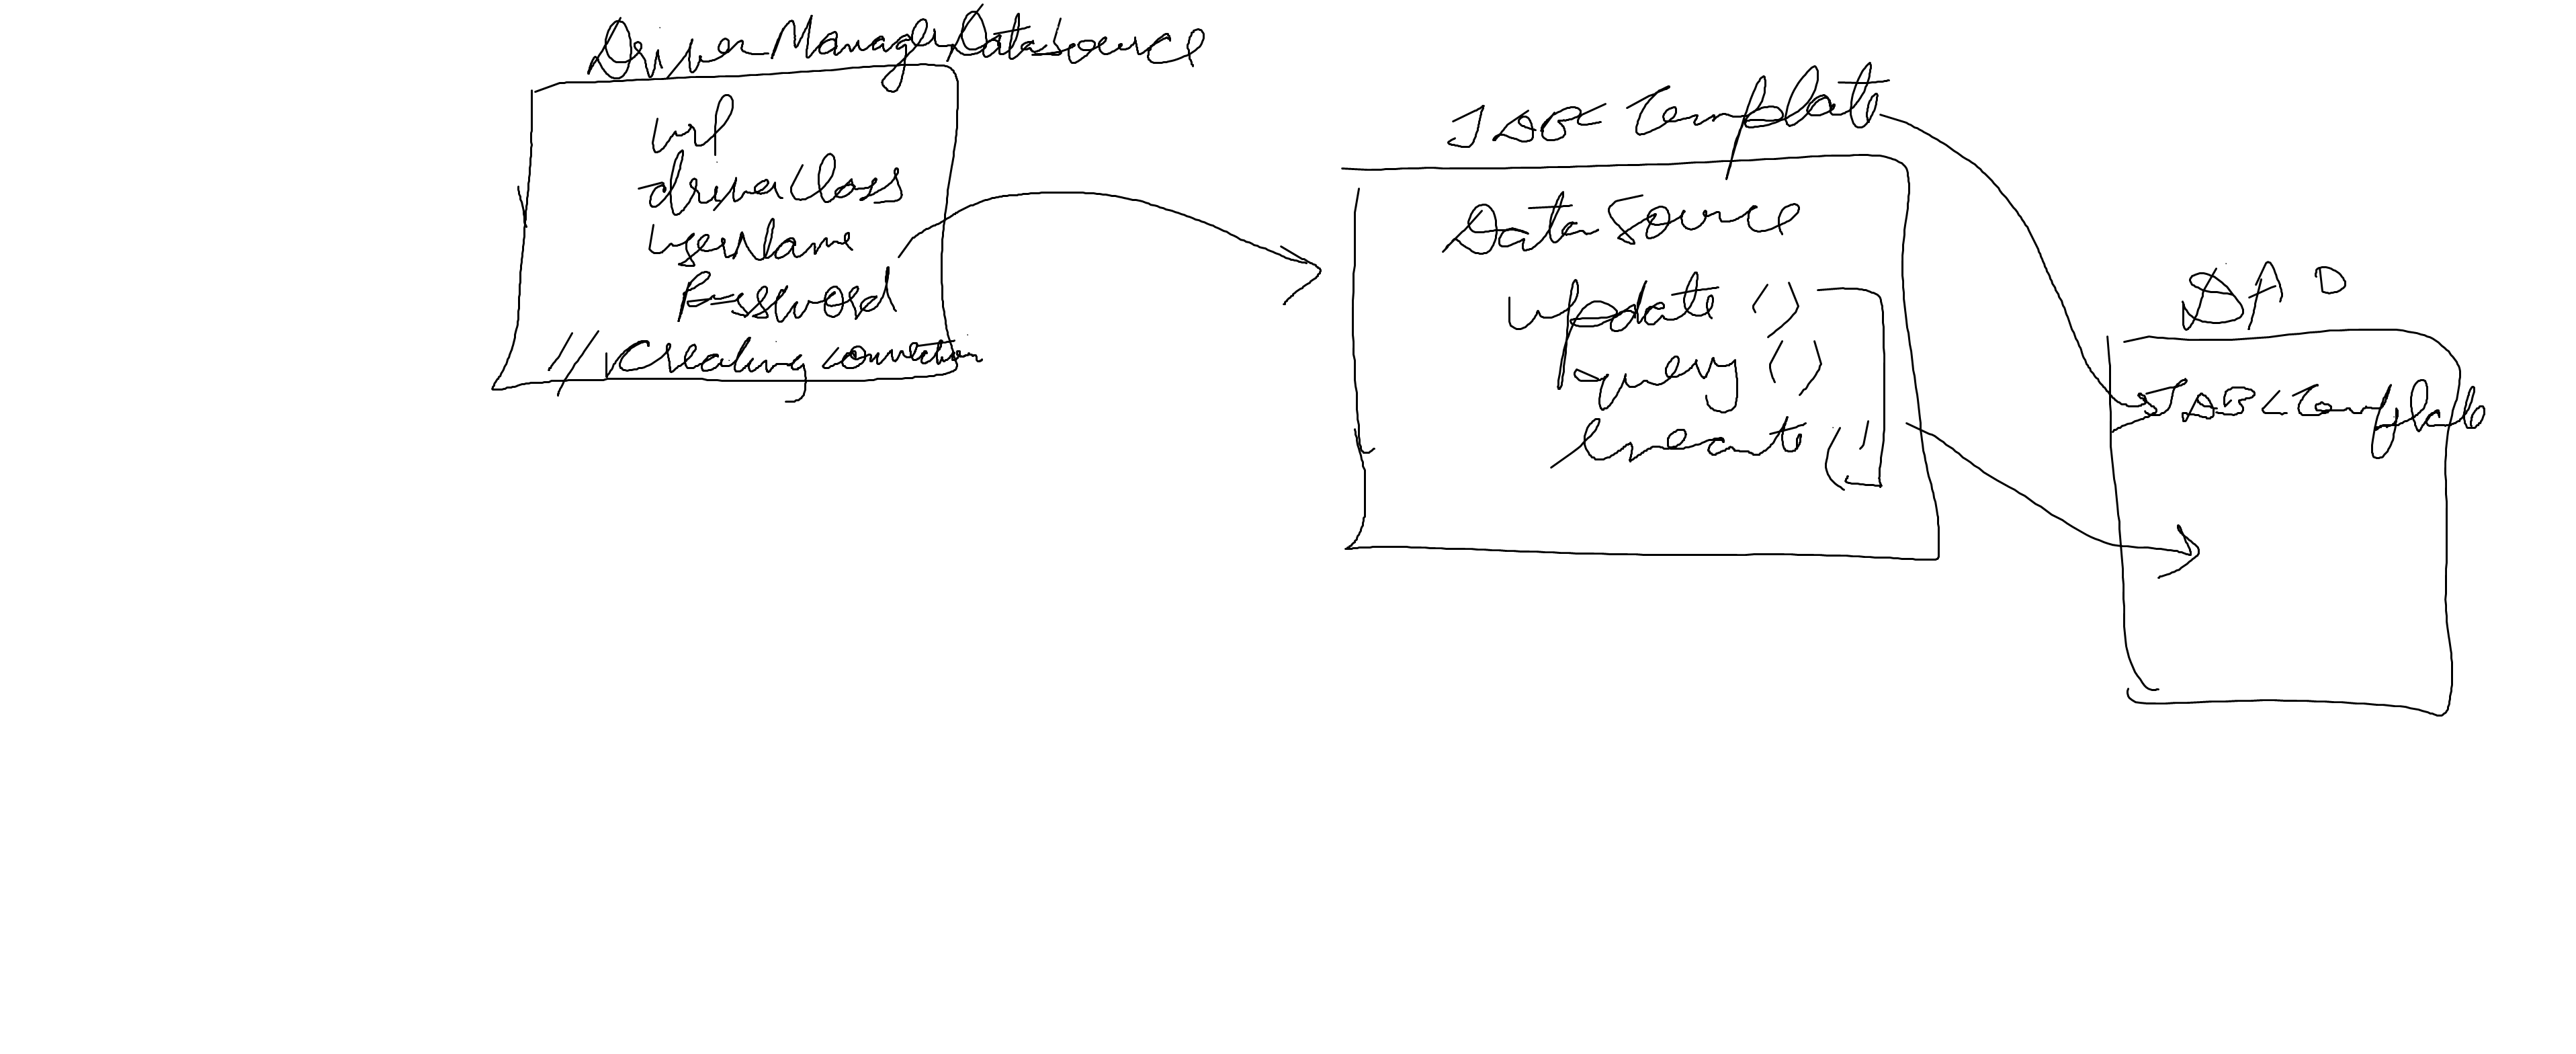 DriverManagerDataSource
url
driverClass
userName
Password
// creating connection
JDBC Template
DataSource
update ()
query ()
execute ()
DAO
JDBCTemplate